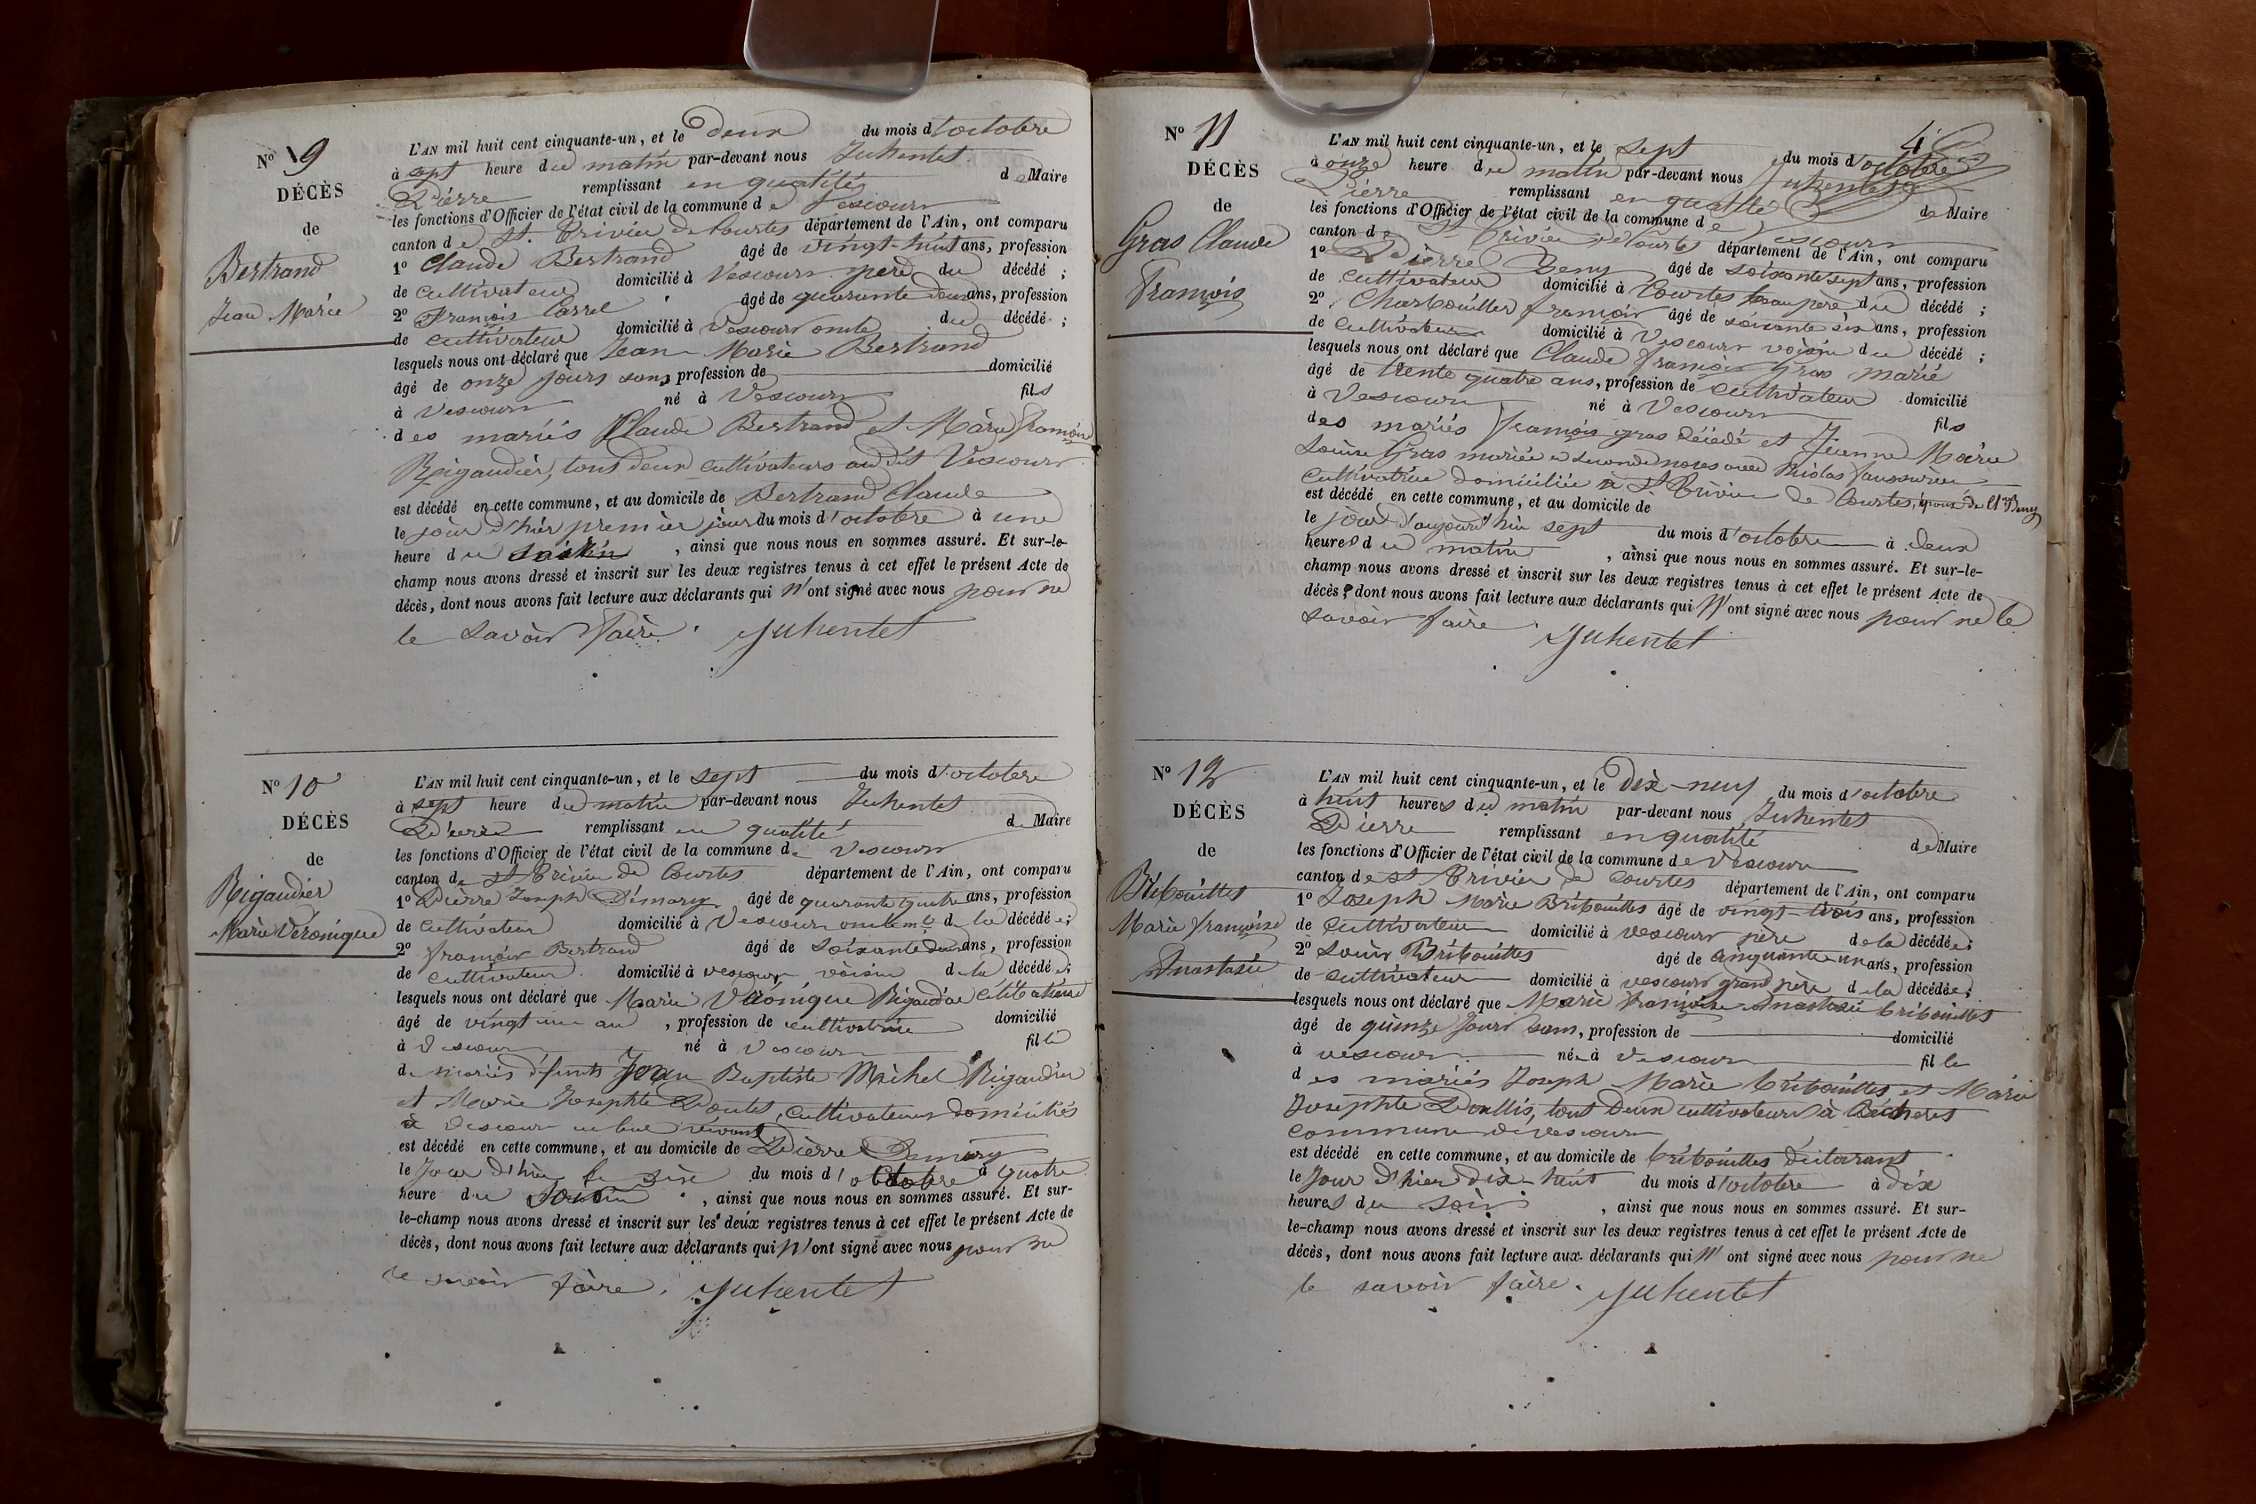 N° 9
DÉCÈS
de
Bertrand
Jean Marie
L'AN mil huit cent cinquante-un, et le deux du mois d'octobre
à sept heure du matin par-devant nous Juhentet
Pierre remplissant en qualité de Maire
les fonctions d'Officier de l'état civil de la commune de Vescours
canton de St. Trivier de Courtes département de l'Ain, ont comparu
1° Claude Bertrand âgé de vingt-huit ans, profession
de cultivateur domicilié à Vescours père du décédé ;
2° François Carrel âgé de quarante deux ans, profession
de cultivateur domicilié à Vescours oncle du décédé ;
lesquels nous ont déclaré que Jean Marie Bertrand
âgé de onze jours sans profession de domicilié
à Vescours né à Vescours fils
des mariés Claude Bertrand et Marie françoise
Rigaudier, tout deux cultivateurs au dit Vescours
est décédé en cette commune, et au domicile de Bertrand Claude
le jour d'hier premier jour du mois d'octobre à une
heure du , ainsi que nous nous en sommes assuré. Et sur-le-
champ nous avons dressé et inscrit sur les deux registres tenus à cet effet le présent Acte de
décès, dont nous avons fait lecture aux déclarants qui n'ont signé avec nous pour ne
le savoir faire. Juhentet
N° 10
DÉCÈS
de
Rigaudier
Marie Véronique
L'AN mil huit cent cinquante-un, et le sept du mois d'octobre
à sept heure du matin par-devant nous Juhentet
Pierre remplissant en qualité de Maire
les fonctions d'Officier de l'état civil de la commune de Vescours
canton de St Trivier de Courtes département de l'Ain, ont comparu
1° Pierre Joseph Démary âgé de quarante quatre ans, profession
de cultivateur domicilié à Vescours oncle de la décédée ;
2° françois Bertrand âgé de soixante deux ans, profession
de cultivateur domicilié à vescours voisin de la décédée ;
lesquels nous ont déclaré que Marie Véronique Rigaudier célibataire
âgé de vingt un an , profession de cultivatrice domicilié
à Vescours né à Vescours fille
de mariés défunts Jean Baptiste Michel Rigaudier
et Marie Josephte Doutet, cultivateurs domiciliés
à Vescours vivant
est décédé en cette commune, et au domicile de Pierre Démary
le Jour d'hier le six du mois d'octobre à quatre
heure du , ainsi que nous nous en sommes assuré. Et sur-
le-champ nous avons dressé et inscrit sur les deux registres tenus à cet effet le présent Acte de
décès, dont nous avons fait lecture aux déclarants qui n'ont signé avec nous pour ne
le savoir faire. Juhentet
4
N° 11
DÉCÈS
de
Gras Claude
François
L'AN mil huit cent cinquante-un, et le sept du mois d'octobre
à onze heure du matin par-devant nous Juhentet
Pierre remplissant en qualité de Maire
les fonctions d'Officier de l'état civil de la commune de Vescours
canton de St Trivier de Courtes département de l'Ain, ont comparu
1° Pierre Beny âgé de soixante sept ans, profession
de cultivateur domicilié à Courtes beaupère du décédé ;
2° Charbouillet françois âgé de soixante six ans, profession
de cultivateur domicilié à Vescours voisin du décédé ;
lesquels nous ont déclaré que Claude françois Gras marié
âgé de trente quatre ans, profession de cultivateur domicilié
à Vescours né à Vescours fils
des mariés françois gras décédé et Jeanne Marie
Louise Gras mariée en seconde noces avec Nicolas
cultivatrice domiciliée à St Trivier de Courtes, époux de Beny
est décédé en cette commune, et au domicile de
le jour d'aujourd'hui sept du mois d'octobre à deux
heures du matin , ainsi que nous nous en sommes assuré. Et sur-le-
champ nous avons dressé et inscrit sur les deux registres tenus à cet effet le présent Acte de
décès, dont nous avons fait lecture aux déclarants qui n'ont signé avec nous pour ne le
savoir faire. Juhentet
N° 12
DÉCÈS
de
Bribouillet
Marie françoise
Anastasie
L'AN mil huit cent cinquante-un, et le dix-neuf du mois d'octobre
à huit heures du matin par-devant nous Juhentet
Pierre remplissant en qualité de Maire
les fonctions d'Officier de l'état civil de la commune de Vescours
canton de St Trivier de Courtes département de l'Ain, ont comparu
1° Joseph Marie Bribouillet âgé de vingt-trois ans, profession
de cultivateur domicilié à vescours père de la décédée ;
2° Louis Bribouillet âgé de cinquante un ans, profession
de cultivateur domicilié à vescours grand père de la décédée ;
lesquels nous ont déclaré que Marie françoise Anastasie bribouillet
âgé de quinze Jours sans, profession de domicilié
à vescours née à vescours fille
des mariés Joseph Marie bribouillet et Marie
Josephte, tout deux cultivateurs à
commune de vescours
est décédé en cette commune, et au domicile de bribouillet déclarant
le Jour d'hier dix-huit du mois d'octobre à dix
heures du soir , ainsi que nous nous en sommes assuré. Et sur-
le-champ nous avons dressé et inscrit sur les deux registres tenus à cet effet le présent Acte de
décès, dont nous avons fait lecture aux déclarants qui n'ont signé avec nous pour ne
le savoir faire. Juhentet